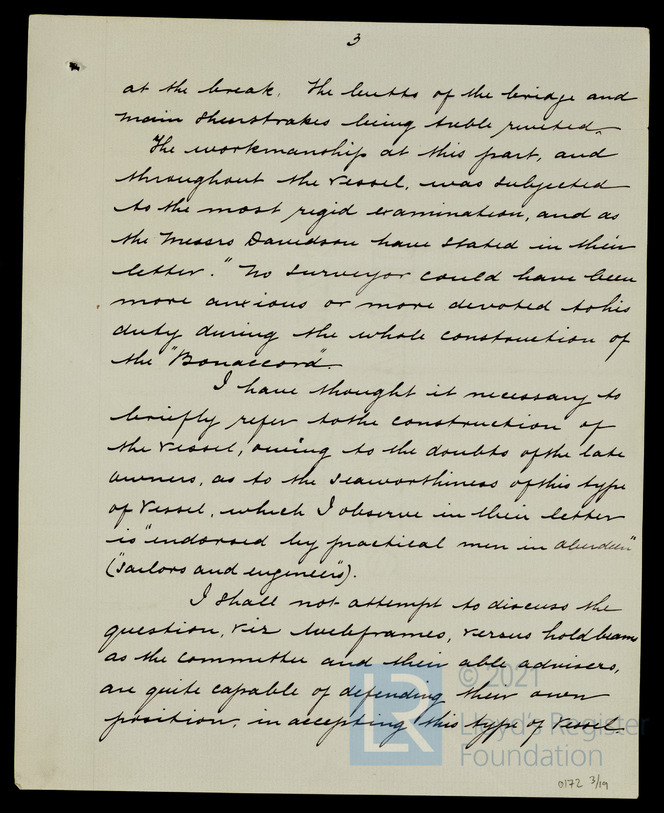 3
at the break. The butts of the bridge and
main Sheerstrakes being treble riveted.
The workmanship at this part, and
throughout the vessel, was subjected
to the most rigid examination, and as
the Messrs Davidson have stated in their
letter. "No surveyor could have been
more anxious or more devoted to his
duty during the whole construction of
the "Bonaccord".
I have thought it necessary to
briefly refer to the construction of
the vessel, owing to the doubts of the late
owners, as to the seaworthiness of this type
of vessel, which I observe in their letter
is "indorsed by practical men in Aberdeen"
("Sailors and engineers").
I shall not attempt to discuss the
question, viz Webframes, versus hold beams
as the committee and their able advisers,
are quite capable of defending their own
position, in accepting this type of vessel.
© 2021
Lloyd's Register
Foundation
LR
0172 3/19